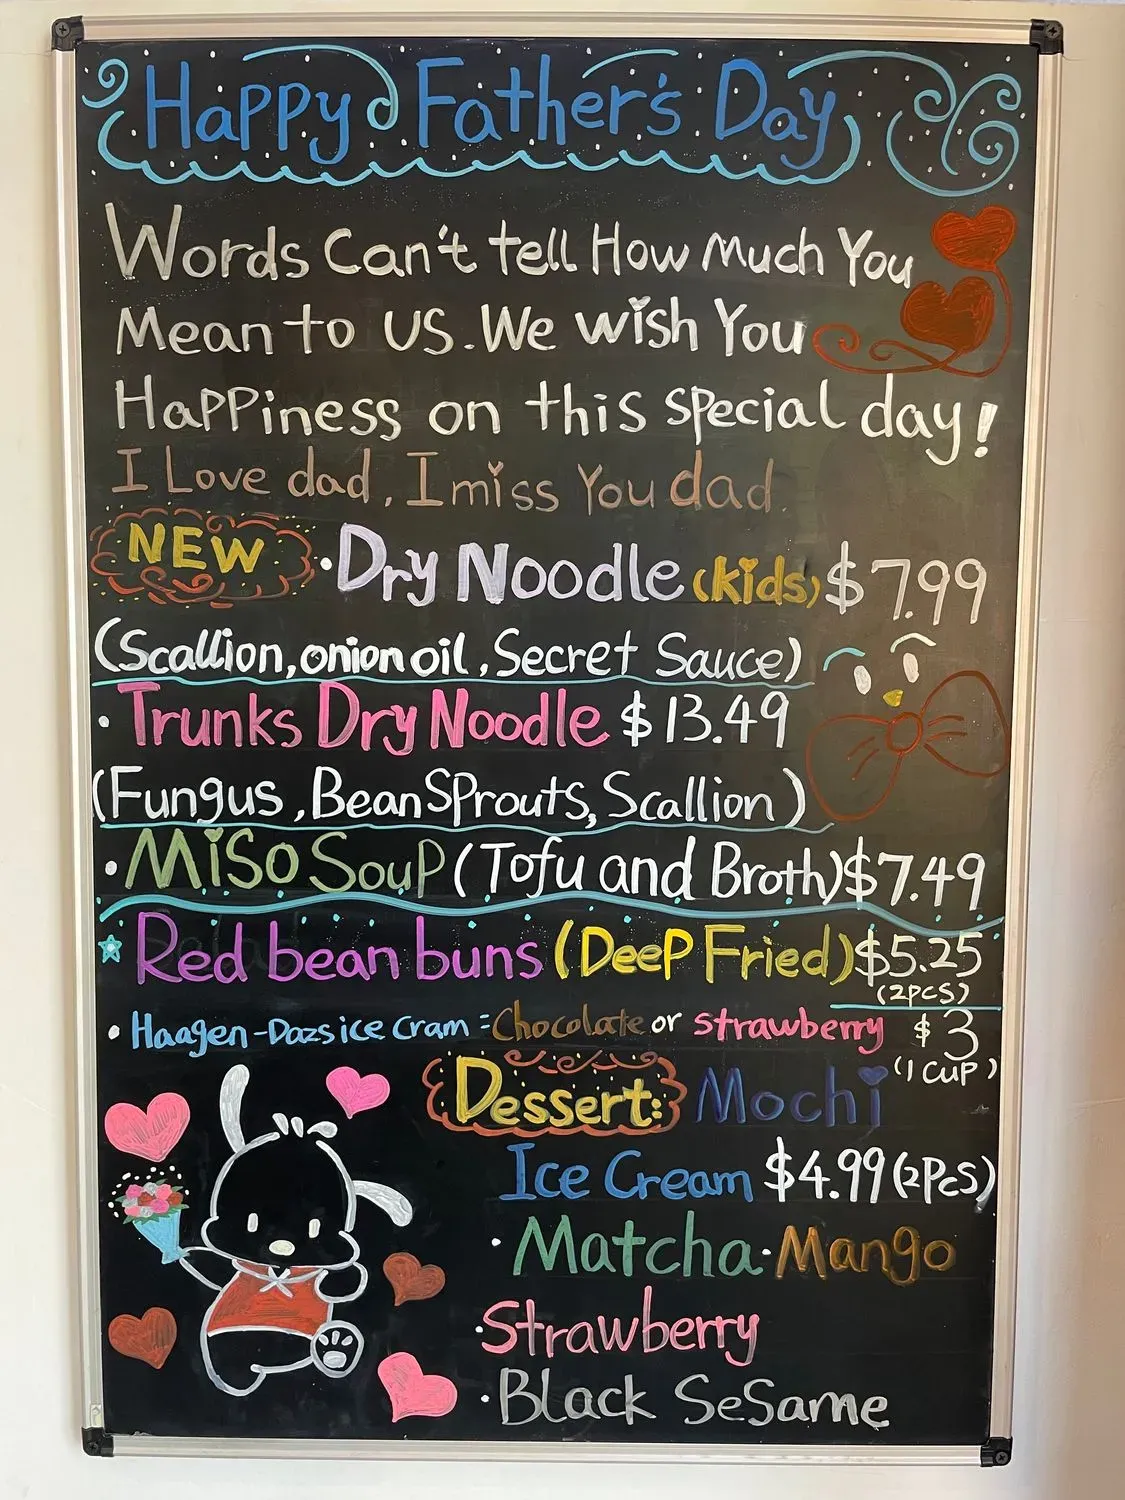 Happy Father's Day
Words Can't tell How Much You
Mean to US. We wish You
Happiness on this special day!
I Love dad, I miss You dad
NEW • Dry Noodle (kids) $7.99
(Scallion, onion oil, Secret Sauce)
• Trunks Dry Noodle $13.49
(Fungus, Bean Sprouts, Scallion)
• Miso Soup (Tofu and Broth) $7.49
Red bean buns (Deep Fried) $5.25
(2pcs)
• Haagen-Dazs ice Cram : Chocolate or strawberry $3
(1 cup)
Dessert: Mochi
Ice Cream $4.99 (2Pcs)
• Matcha • Mango
• Strawberry
• Black SeSame